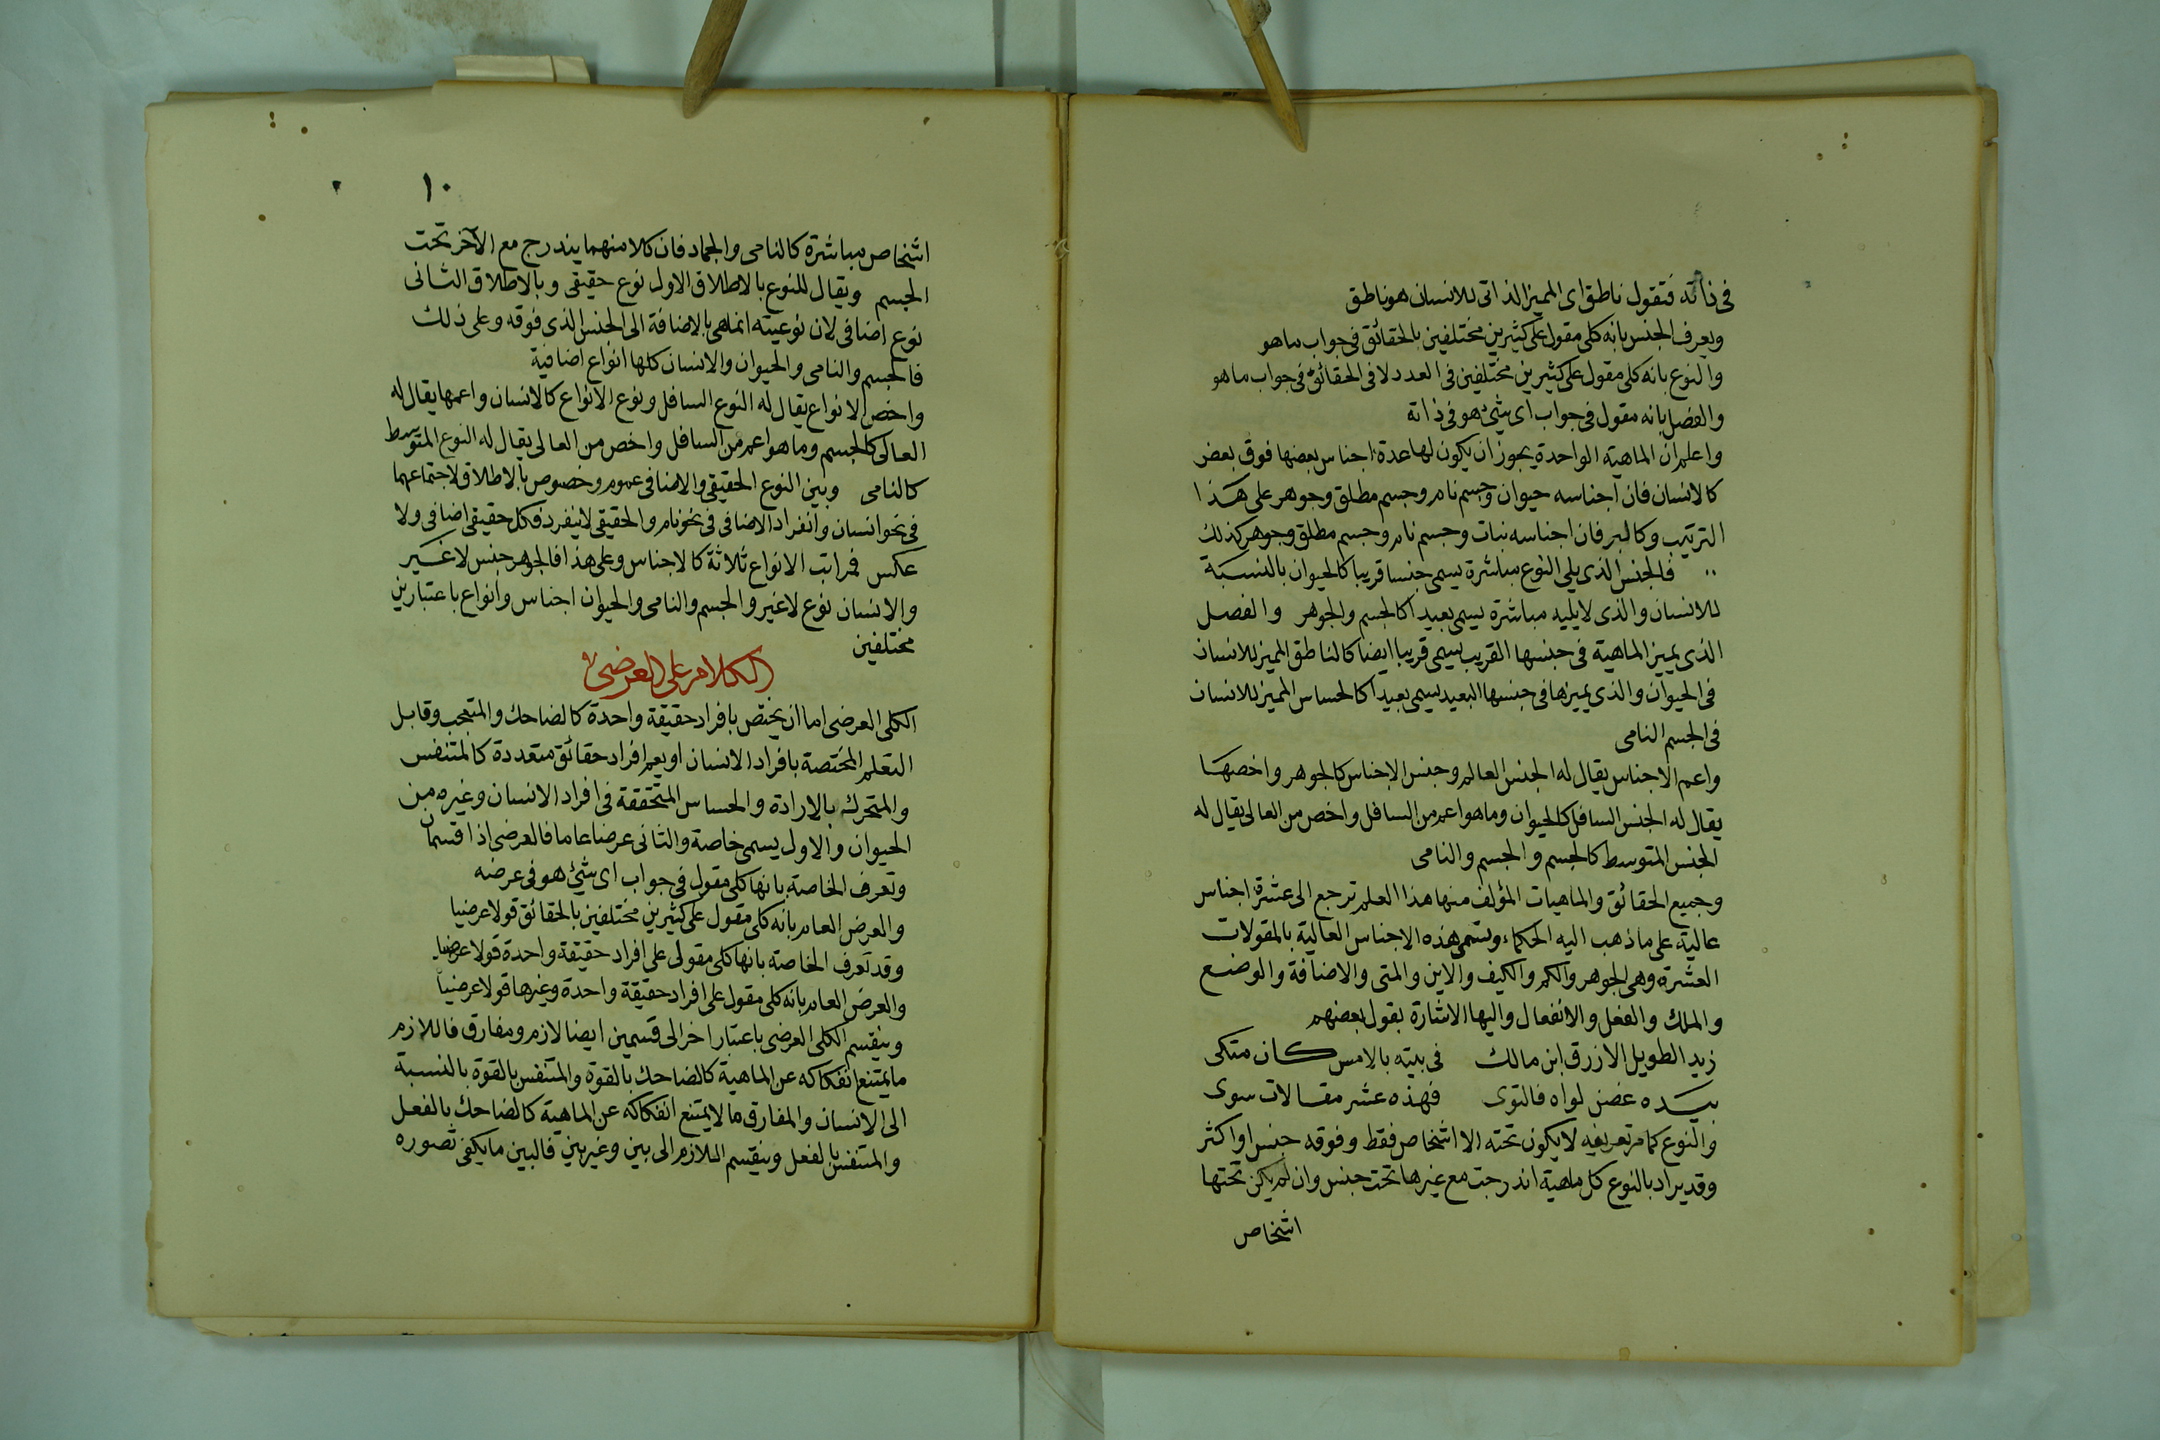 فى ذاته فتقول ناطق اى المميز الذاتى للانسان هو ناطق
ويعرف الجنس بانه كلى مقول على كثيرين مختلفين بالحقائق فى جواب ما هو
والنوع بانه كلى مقول على كثيرين مختلفين فى العدد لا فى الحقائق فى جواب ما هو
والفصل بانه مقول فى جواب اى شئ هو فى ذاته
واعلم ان الماهية الواحدة يجوز ان يكون لها عدة اجناس بعضها فوق بعض
كالانسان فان اجناسه حيوان وجسم نام وجسم مطلق وجوهر على هذا
الترتيب وكالبر فان اجناسه نبات وجسم نام وجسم مطلق وجوهر كذلك
فالجنس الذى يلى النوع مباشرة يسمى جنسا قريبا كالحيوان بالنسبة
للانسان والذى لا يليه مباشرة يسمى بعيدا كالجسم والجوهر والفصل
الذى يميز الماهية فى جنسها القريب يسمى قريبا ايضا كالناطق المميز للانسان
فى الحيوان والذى يميزها فى جنسها البعيد يسمى بعيدا كالحساس المميز للانسان
فى الجسم النامى
واعم الاجناس يقال له الجنس العالم وجنس الاجناس كالجوهر واخصها
يقال له الجنس السافل كالحيوان وما هو اعم من السافل واخص من العالى يقال له
الجنس المتوسط كالجسم والجسم والنامى
وجميع الحقائق والماهيات المؤلف منها هذا العلم ترجع الى عشرة اجناس
عالية على ما ذهب اليه الحكماء وتسمى هذه الاجناس العالية بالمقولات
العشرة وهى الجوهر والكم والكيف والاين والمتى والاضافة والوضع
والملك والفعل والانفعال واليها الاشارة بقول بعضهم
زيد الطويل الازرق ابن مالك فى بيته بالامس كان متكى
بيده غصن لواه فالتوى فهذه عشر مقالات سوى
والنوع كما مر تعريفه لا يكون تحته الا اشخاص فقط وفوقه جنس او اكثر
وقد يراد بالنوع كل ماهية اندرجت مع غيرها تحت جنس وان لم يكن تحتها
اشخاص
١٠
اشخاص مباشرة كالنامى والجماد فان كلا منهما يندرج مع الآخر تحت
الجسم ويقال للنوع بالاطلاق الاول نوع حقيقى وبالاطلاق الثانى
نوع اضافى لان نوعيته انما هى بالاضافة الى الجنس الذى فوقه وعلى ذلك
فالجسم والنامى والحيوان والانسان كلها انواع اضافية
واخص الانواع يقال له النوع السافل ونوع الانواع كالانسان واعمها يقال له
العالى كالجسم وما هو اعم من السافل واخص من العالى يقال له النوع المتوسط
كالنامى وبين النوع الحقيقى والاضافى عموم وخصوص بالاطلاق لاجتماعهما
فى نحو انسان وانفراد الاضافى فى نحو نام والحقيقى لا ينفرد فكل حقيقى اضافى ولا
عكس فمراتب الانواع ثلاثة كالاجناس وعلى هذا فالجوهر جنس لا غير
والانسان نوع لا غير والجسم والنامى والحيوان اجناس وانواع باعتبارين
مختلفين
الكلام على العرضى
الكلى العرضى اما ان يختص بافراد حقيقة واحدة كالضاحك والمتعجب وقابل
التعلم المختصة بافراد الانسان او يعم افراد حقائق متعددة كالمتنفس
والمتحرك بالارادة والحساس المتحققة فى افراد الانسان وغيره من
الحيوان والاول يسمى خاصة والثانى عرضا عاما فالعرضى اذا قسمان
وتعرف الخاصة بانها كلى مقول فى جواب اى شئ هو فى عرضه
والعرض العام بانه كلى مقول على كثيرين مختلفين بالحقائق قولا عرضيا
وقد تعرف الخاصة بانها كلى مقولى على افراد حقيقة واحدة قولا عرضيا
والعرض العام بانه كلى مقول على افراد حقيقة واحدة وغيرها قولا عرضيا
وينقسم الكلى العرضى باعتبار اخر الى قسمين ايضا لازم ومفارق فاللازم
ما يمتنع انفكاكه عن الماهية كالضاحك بالقوة والمتنفس بالقوة بالنسبة
الى الانسان والمفارق ما لا يمتنع انفكاكه عن الماهية كالضاحك بالفعل
والمتنفس بالفعل وينقسم اللازم الى بين وغير بين فالبين ما يكفى تصوره